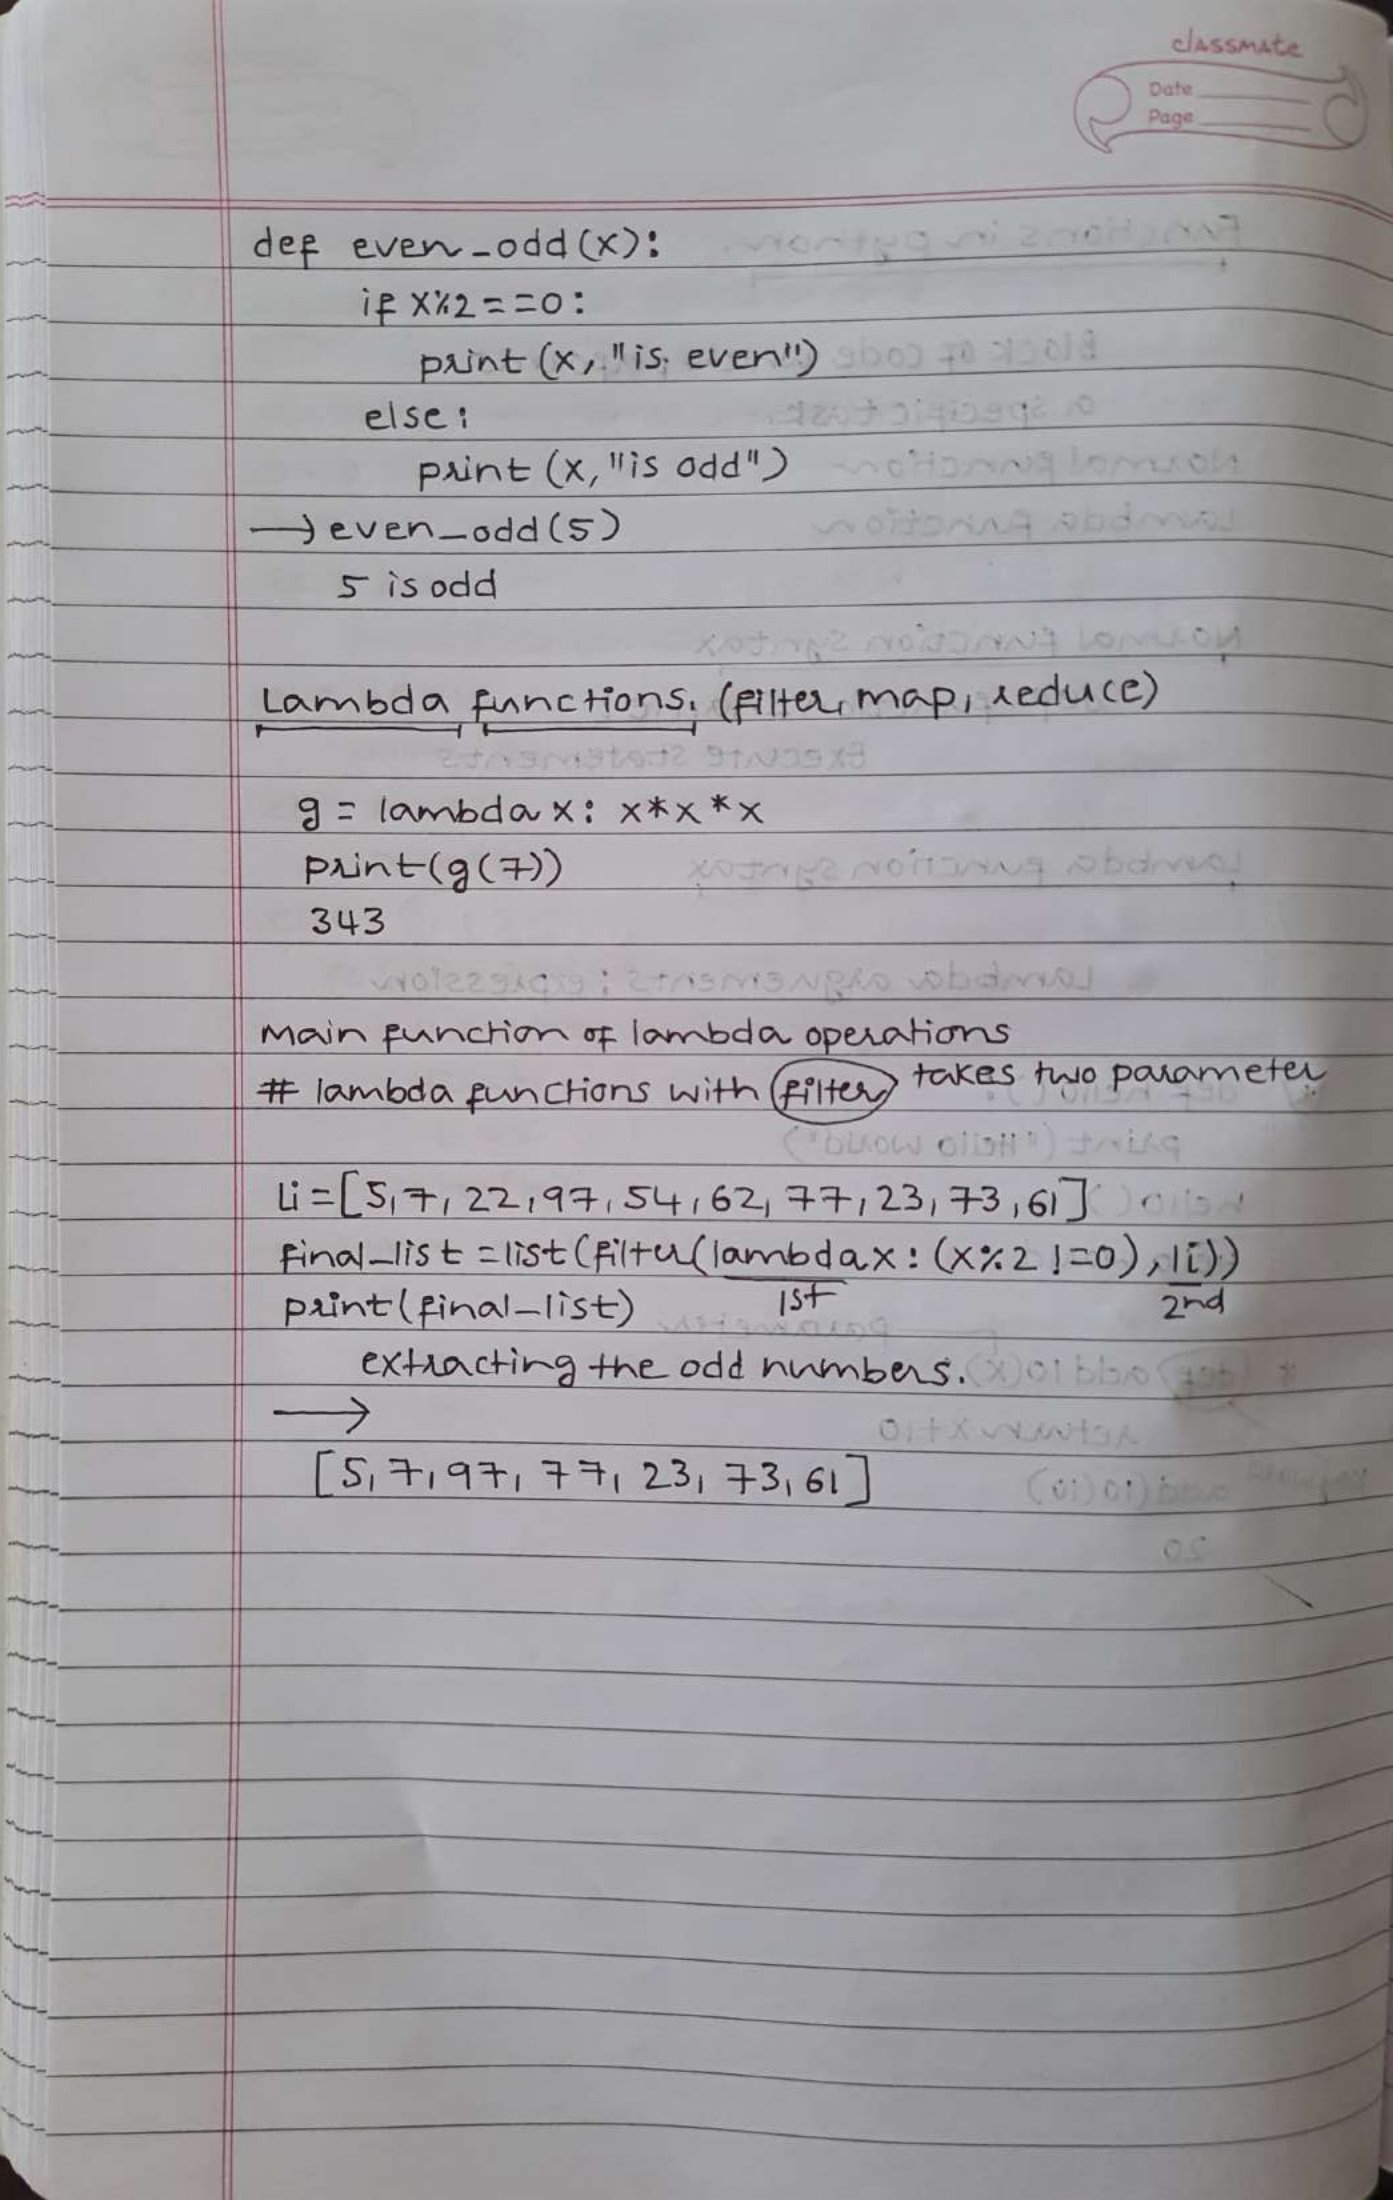 classmate
Date
Page
def even_odd(x):
if x%2==0:
print(x, "is even")
else:
print(x, "is odd")
→ even_odd(5)
5 is odd
Lambda functions. (filter, map, reduce)
g = lambda x: x*x*x
print(g(7))
343
Main function of lambda operations
# lambda functions with filter takes two parameter
li=[5,7,22,97,54,62,77,23,73,61]
final_list =list(filter(lambda x: (x%2!=0),li))
1st 2nd
print(final_list)
extracting the odd numbers.
→
[5,7,97,77,23,73,61]